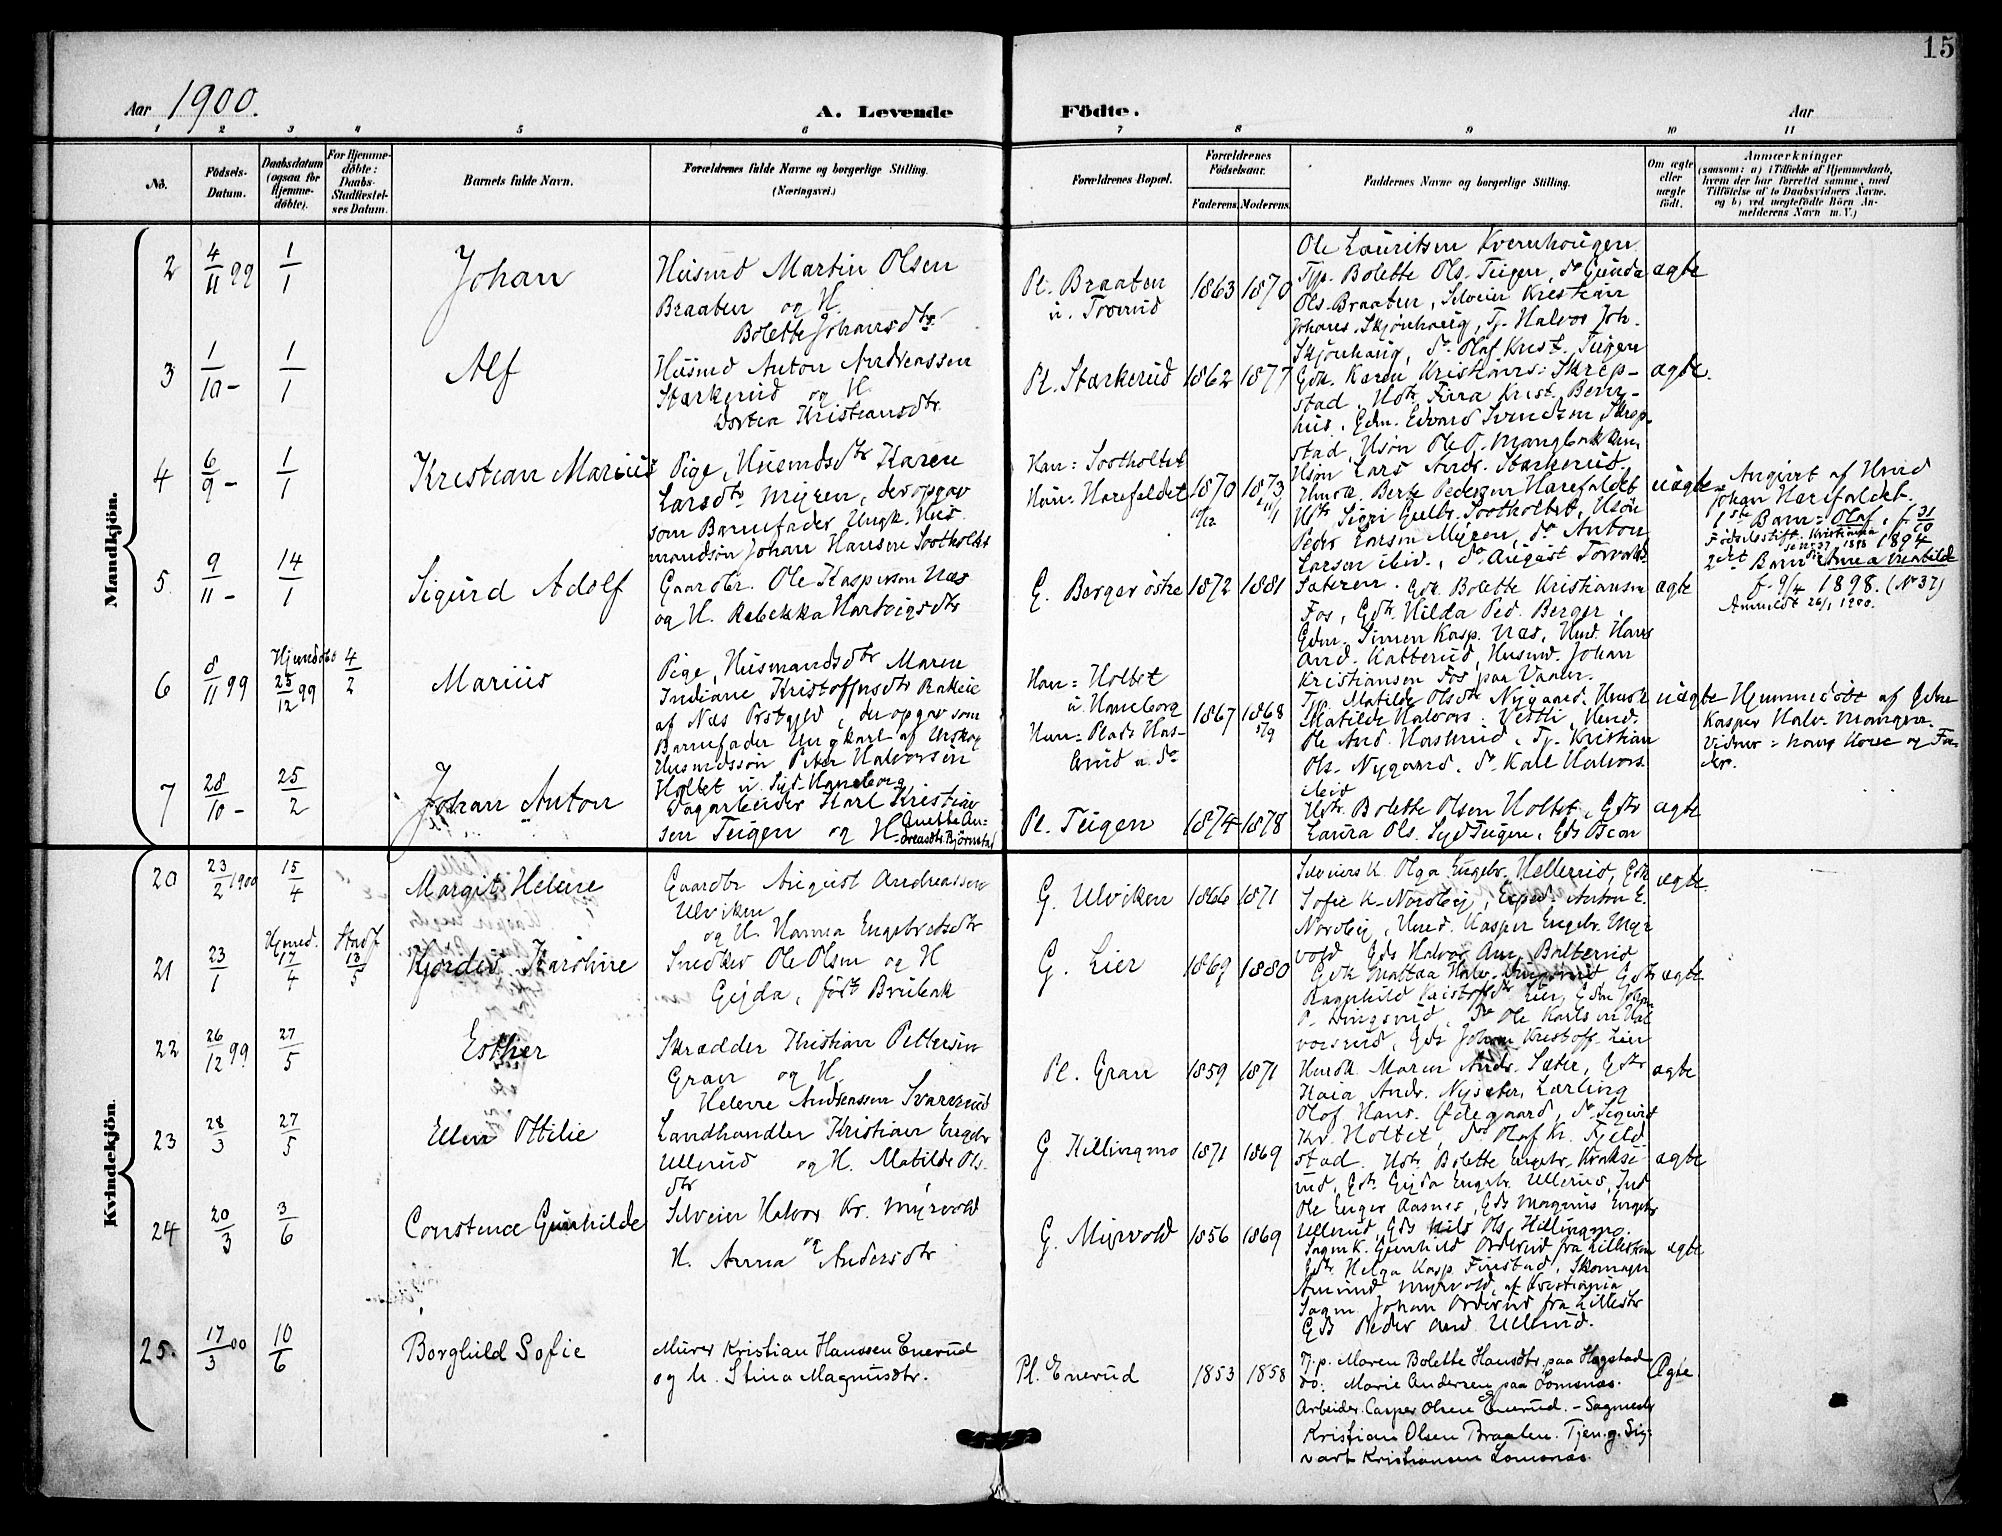 15
Aar 1900.
A. Levende Födte.
Aar
1 2 3 4 5 6 7 8 9 10 11
No.
Födsels-
Datum.
Daabsdatum
(ogsaa for
Hjemme-
døbte).
For Hjemme-
døbte:
Daabs-
Stadfæstel-
ses Datum.
Barnets fulde Navn.
Forældrenes fulde Navne og borgerlige Stilling.
(Næringsvei.)
Forældrenes Bopæl.
Forældrenes
Födselsaar.
Faderens. Moderens.
Faddernes Navne og borgerlige Stilling.
Om ægte
eller
uægte
født.
Anmærkninger
(saasom: a) i Tilfælde af Hjemmedaab,
hvem der har forrettet samme, med
Tilföielse af to Daabsvidners Navne,
og b) ved uægtefödte Börn An-
melderens Navn m. V.)
Mandkjön.
2
4/11 99
1/1
Johan
Husmd Martin Olsen
Braaten og H.
Bolette Johansdtr
Pl. Braaten
u. Toverud
1863 1870
Ole Lauritsen Kvernhougen
Tjp. Bolette Ols. Teigen, do Gunda
Ols. Braaten, Selveier Kristian
Johans. Skjønhaug, Tj. Halvor Joh.
Skjønhaug, do Olaf Krist. Teigen
ægte
3
1/10 -
1/1
Alf
Husmd Anton Andreassen
Stærkerud og H.
Dortea Kristiansdtr.
Pl. Stærkerud
1862 1877
Gdk. Karen Kristians. Skrep-
stad, Hdtr. Krist. Berg-
hus, Gdm. Edvard Svendsen Skrep-
stad, Hsøn Ole P. Mangbakken,
Hsøn Lars Andr. Stærkerud.
ægte.
4
6/9 -
1/1
Kristian Marius
Pige, Husmdsdtr Karen
Larsdtr Myren, der opgav
som Barnefader Ungk. Hus-
mandssøn Johan Hansen Sootholtet
Han: Sootholtet
Hun: Harefaldet
1870 10/12
1873 11/1
Hmdk. Berte Pedersen Harefaldet
Hdtr Gulbr. Sootholtet, Hsøn
Peder Larsen Myren, do Anton
Larsen ibid., do August
Sæteren.
uægte
Angivet af Hmd
Johan Harefaldet.
1ste Barn: Olaf, f. 31/10
Födselsstift. Kristiania
1894
2det Barn Anna Matilde
f. 9/4 1898. (No 37)
Anmeldt 26/1 1900.
5
9/11 -
14/1
Sigurd Adolf
Gaardbr. Ole Kaspersen Næs
og H. Rebekka Hartvigsdtr
G. Berger østre
1872 1881
Gdk. Bolette Kristiansen
Fos, Gdk. Hilda Ped. Berger,
Gdm. Simen Kasp. Næs, Hmd. Hans
And. Katterud, Husmd. Johan
Kristiansen Fos paa Vaaler.
ægte
6
8/11 99
Hjemdøbt
25/12 99
4/2
Marius
Pige, Husmandsdtr Maren
Indiane Kristoffersdtr Rakeie
af Næs Prstgjld, der opgav som
Barnefader Ungkarl af Urskog
Husmdssøn Peter Halvorsen
Holtet u. Syd-Haneborg
Han: Holtet
u. Haneborg
Hun: Plads Has-
lerud u. do
1867
1868 5/9
Tj. Matilde Olsdtr Nygaard, Hmdk
Matilde Halvors. Vestli, Hmd.
Ole And. Haslerud, Tj. Kristian
Ols. Nygaard, do Karl Halvors.
ibid
uægte
Hjemmedøbt af Gdm
Kasper Halv. Mangen.
Vidner: hans Kone og Fa-
der.
7
28/10 -
25/2
Johan Anton
Dagarbeider Karl Kristian-
sen Teigen og H. Anette An-
dreasdtr. Björnstad
Pl. Teigen
1874 1878
Hdtr. Bolette Olsen Holtet, Gdtr
Laura Ols. Syd Teigen, Gds Oscar
ægte
Kvindekjön.
20
23/2 1900
15/4
Margit Helene
Gaardbr August Andreassen
Ulviken
og H. Hanna Engebretsdtr
G. Ulviken
1866 1871
Selveiers K. Olga Engebr. Hellerud, Gdk
Sofie K. Nordbij, Exped. Anton E.
Nordbij, Hmd. Kasper Engebr. Myr-
vold, Gds Halvor Am. Bolterud
ægte
21
23/1
Hjemd.
17/4
Stadf
13/5
Hjørdis Karoline
Snedker Ole Olsen og H
Gijda, født Brubak
G. Lier
1869 1880
Gdk Mattea Halv. Dingsrud, Gdtr
Ragnhild Kristoffersdtr Lier, Gdm Johan
P. Dingsrud, do Ole Karlsen Hal-
vorsrud, Gds Johan Kristoff. Lier
ægte
22
26/12 99
27/5
Esther
Skrædder Kristian Pettersen
Gran og H.
Helene Andreassen Svarverud
Pl. Gran
1859 1871
Hmdk Maren Andr. Sæter, Gdtr
Kaia Andr. Nysæter, Lærling
Olof Hans. Ødegaard, do Sigurd
Kr. Holtet, do Olaf Kr. Fjeld-
stad.
ægte
23
28/3
27/5
Ellen Ottilie
Landhandler Kristian Engebr.
Ullerud og H. Matilde Ols-
dtr
G Hillingmo
1871 1869
Hdtr. Bolette Engebr. Kraksi-
rud, Gdtr. Gijda Engebr. Ullerud, Ind.
Ole Enger Aasnes, Gds Magnus Engebr
Ullerud, Gds Nils Ols. Hillingmo.
ægte
24
20/3
3/6
Constance Gunhilde
Selveier Halvor Kr. Myrvold
og
H. Anna Andersdtr
G. Myrvold
1856 1869
Sagm.K. Gunhild Orderud fra Lillestrøm
Gdtr. Helga Kasp. Finstad, Skomager
Amund Myrvold, af Kristiania
Sagm. Johan Orderud fra Lillestr.
Gds Peder And. Ullerud.
ægte
25.
17/3 00
10/6
Borghild Sofie
Murer Kristian Hanssen Enerud
og h. Stina Magnusdtr.
Pl. Enerud
1853 1858
Tj.p. Maren Bolette Hansdtr. paa Hogstad
do: Marie Andersen paa Lomsnæs.
Arbeider. Casper Olsen Enerud. - Sagmestr
Kristian Olsen Braaten. Tjen.g. Sig-
vart Kristiansen Lomsnæs.
Ægte.